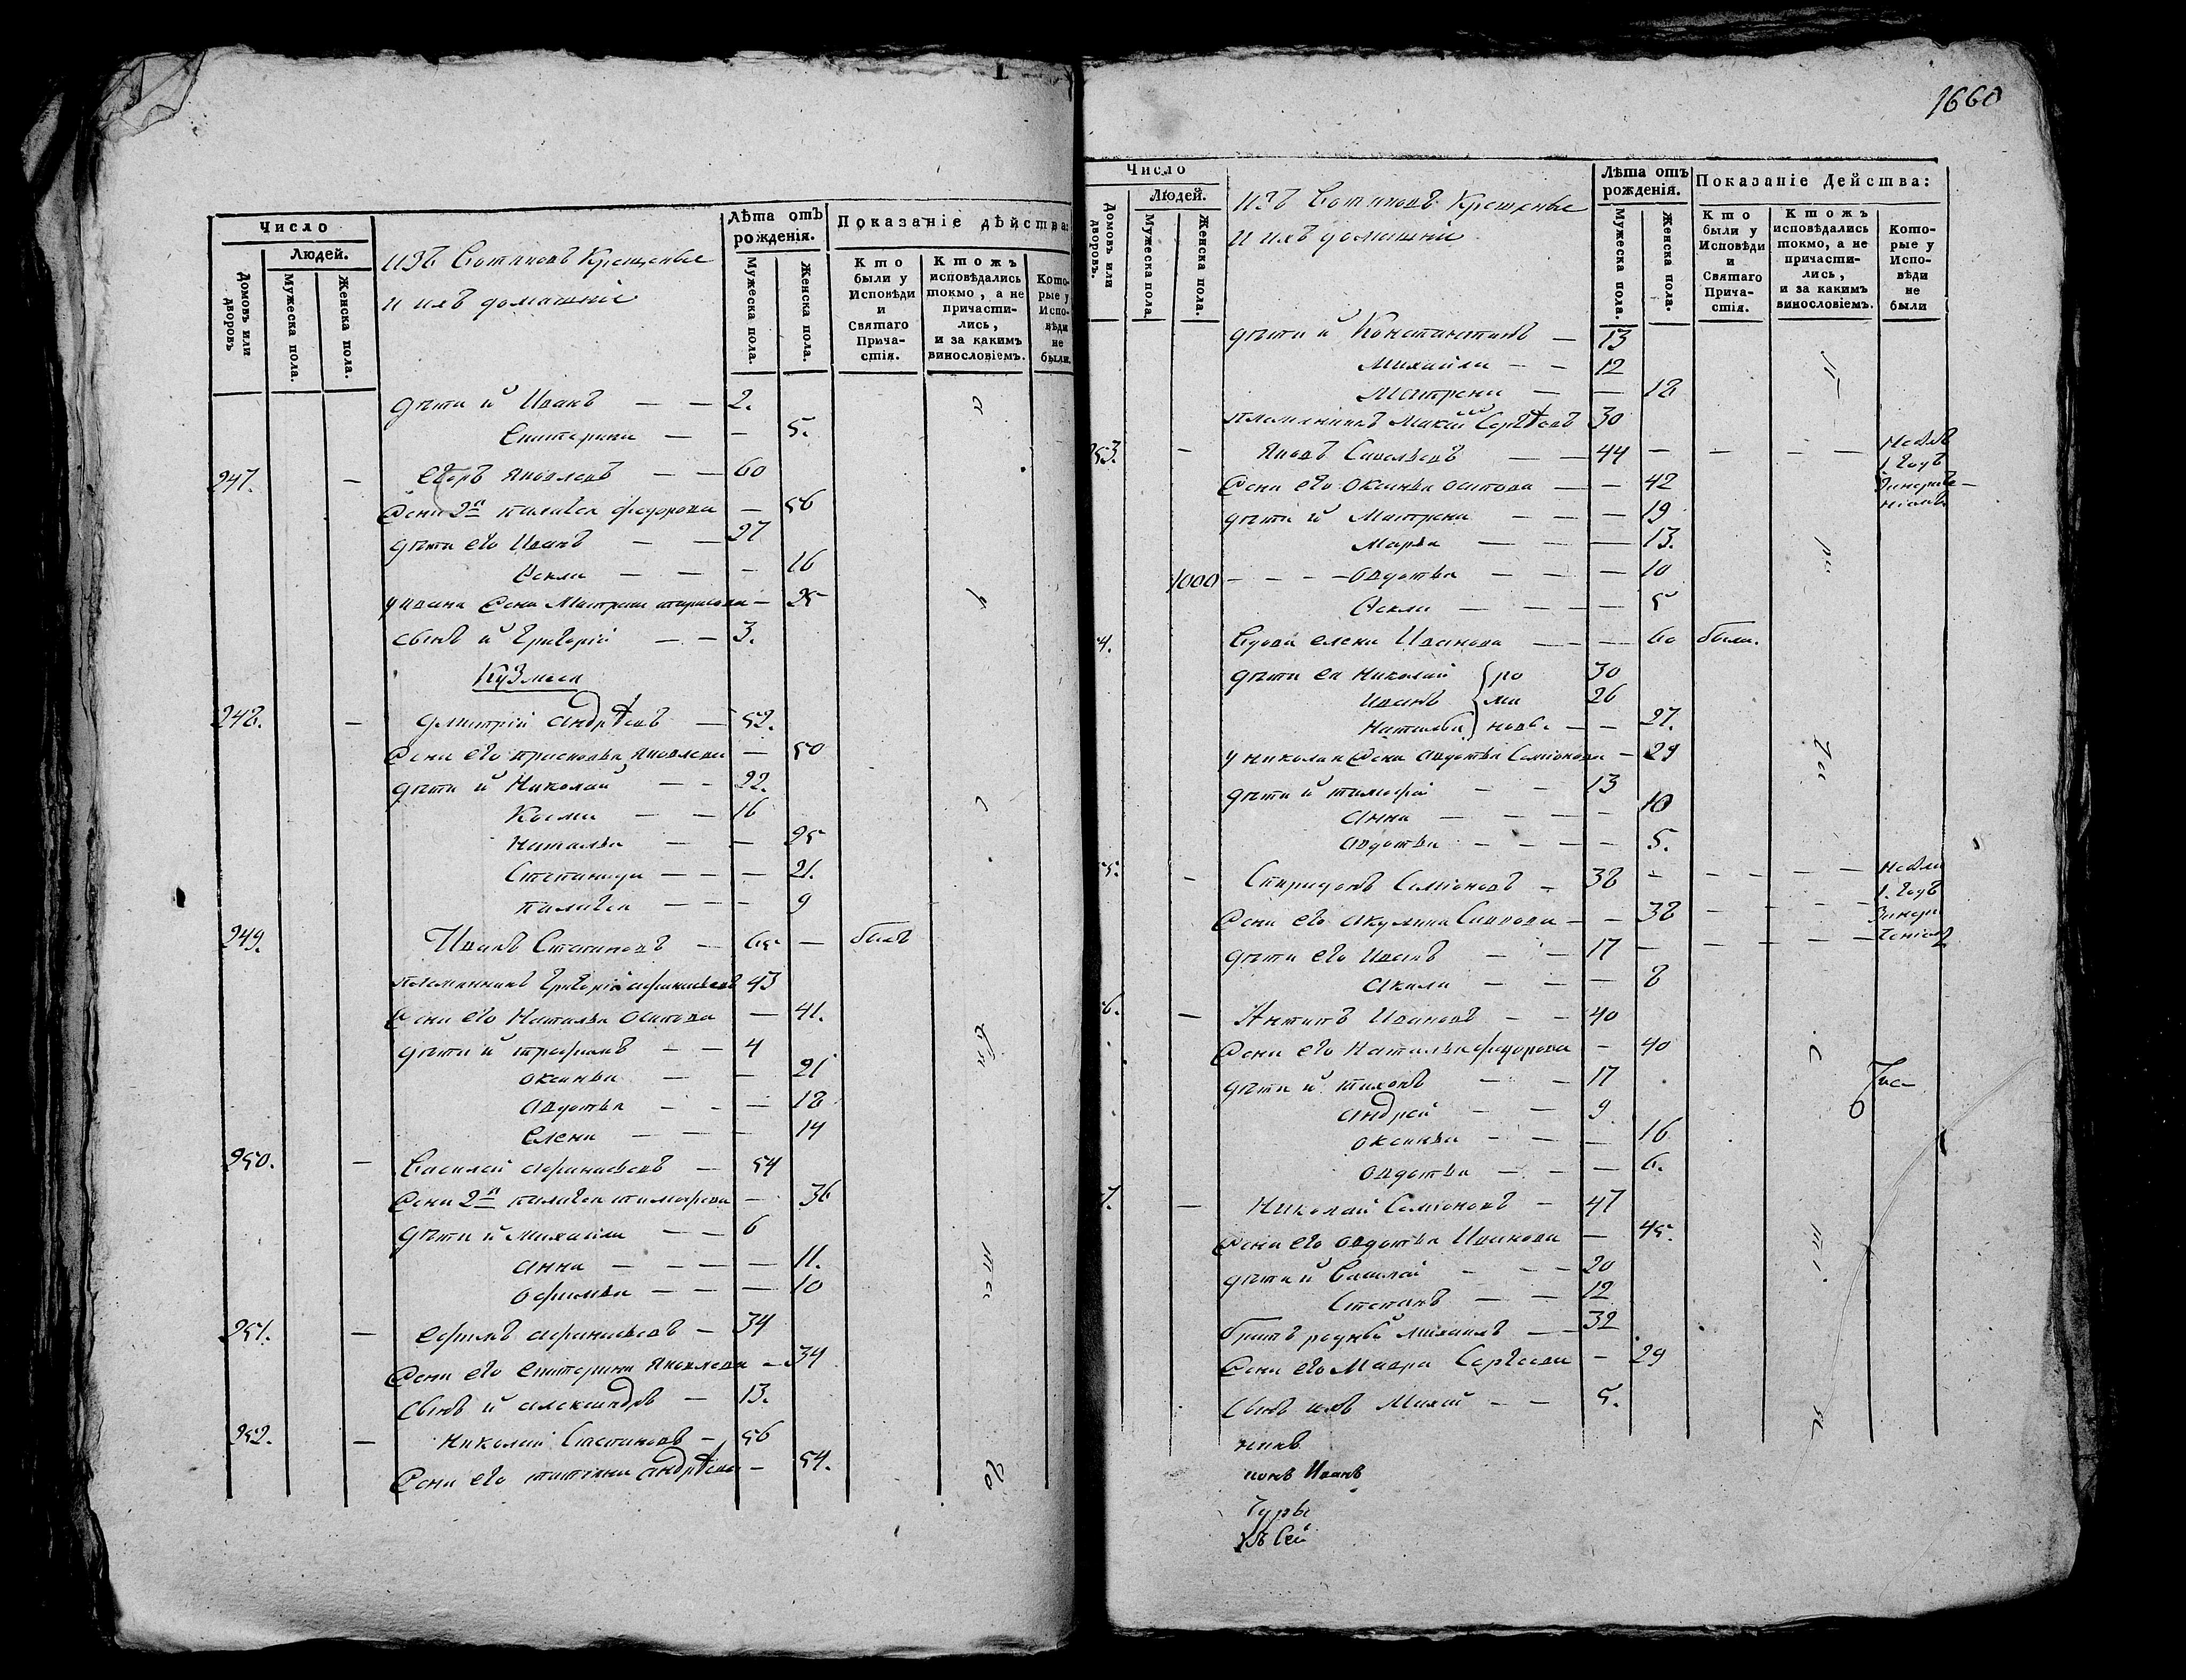 Число
Людей.
Домовъ или дворовъ
Мужеска пола.
Женска пола.
изъ Вотяковъ Крещеные
и ихъ домашніе
Лѣта отъ рожденія.
Мужеска пола.
Женска пола.
Показаніе дѣйства:
Кто были у Исповѣди и Святаго Причастія.
Ктожъ исповѣдались токмо, а не причастились, и за какимъ винословіемъ.
Которые у Исповѣди не были.
дѣти и Иванъ — — 2.
Екатерина — — 5.
247. — Егоръ Яковлевъ — — 60
Жена 2я Палагея Федорова — 56
дѣти его Иванъ — — 27
Фекла — — — 16
у Ивана Жена Матрена — 25
сынъ и Григорій — — 3.
248. — Дмитрій Андрѣевъ — 52.
Жена его Прасковья Яковлева — 50
дѣти и Николай — — 22.
Косма — — 16
Наталья — — 25
Степанида — — — 21.
Палагея — — — 9
249. Иванъ Степановъ — 65 — былъ
племянникъ Григорій Афанасьевъ 43
Жена его Наталья Осипова — 41.
дѣти и Трофимъ — — 4
Оксинья — — 21
Авдотья — — — 18
Елена — — — 14
250. — Василей Афанасьевъ — 54
Жена 2я Палагея Тимофеева — 36
дѣти и Михайла — — 6
Анна — — — — 11.
Офимья — — — 10
251. — Ефимъ Афанасьевъ — 34
Жена его Екатерина Яковлева — 34
Сынъ и Александръ — 13.
252. — Николай Степановъ — 56
Жена его Татіяна Андрѣева — 54.
1660
Число
Людей.
Домовъ или дворовъ.
Мужеска пола.
Женска пола.
изъ Вотяковъ Крещеные
и ихъ домашніе
Лѣта отъ рожденія.
Мужеска пола.
Женска пола.
Показаніе Действа:
Кто были у Исповѣди и Святаго Причастія.
Ктожъ исповѣдались токмо, а не причастились, и за какимъ винословіемъ.
Которые у Исповѣди не были
дѣти и Константинъ — 13
Михайла — — 12
Матрена — — 18
племянникъ Сергѣевъ 30
253. — Яковъ Савельевъ — — 44 — — — —
Жена его Оксинья Осипова — — 42
дѣти и Матрена — — — 19
Марья — — — 13.
1000 — — — — Овдотья — — — 10
Фекла — — — — 5
4. Вдова Елена Иванова — — 60 была.
дѣти ея Николай ро 30
Иванъ ма 26
Наталья новы. — — 27.
у Николая Жена Авдотья Семіонова — 29
дѣти и Тимофей — — 13
Анна — — — — 10
Авдотья — — — — 5.
55. — Спиридонъ Семіоновъ — 38 — — — — —
Жена его Акулина Саввова — — 38 — — —
дѣти его Иванъ — — 17 — — — — —
Акили — — — 8
6. — Антипъ Ивановъ — — 40
Жена его Наталья Федорова — 40
дѣти и Тихонъ — — 17
Андрей — — 9
Оксинья — — — 16
Овдотья — — — 6.
7. — Николай Семіоновъ — 47
Жена его Овдотья Иванова — 45.
дѣти и Василей — — — 20
Степанъ — — 12
братъ родный Михаилъ — — 32
Жена его Мавра Сергеева — 29
Сынъ ихъ — — 5.
Иванъ